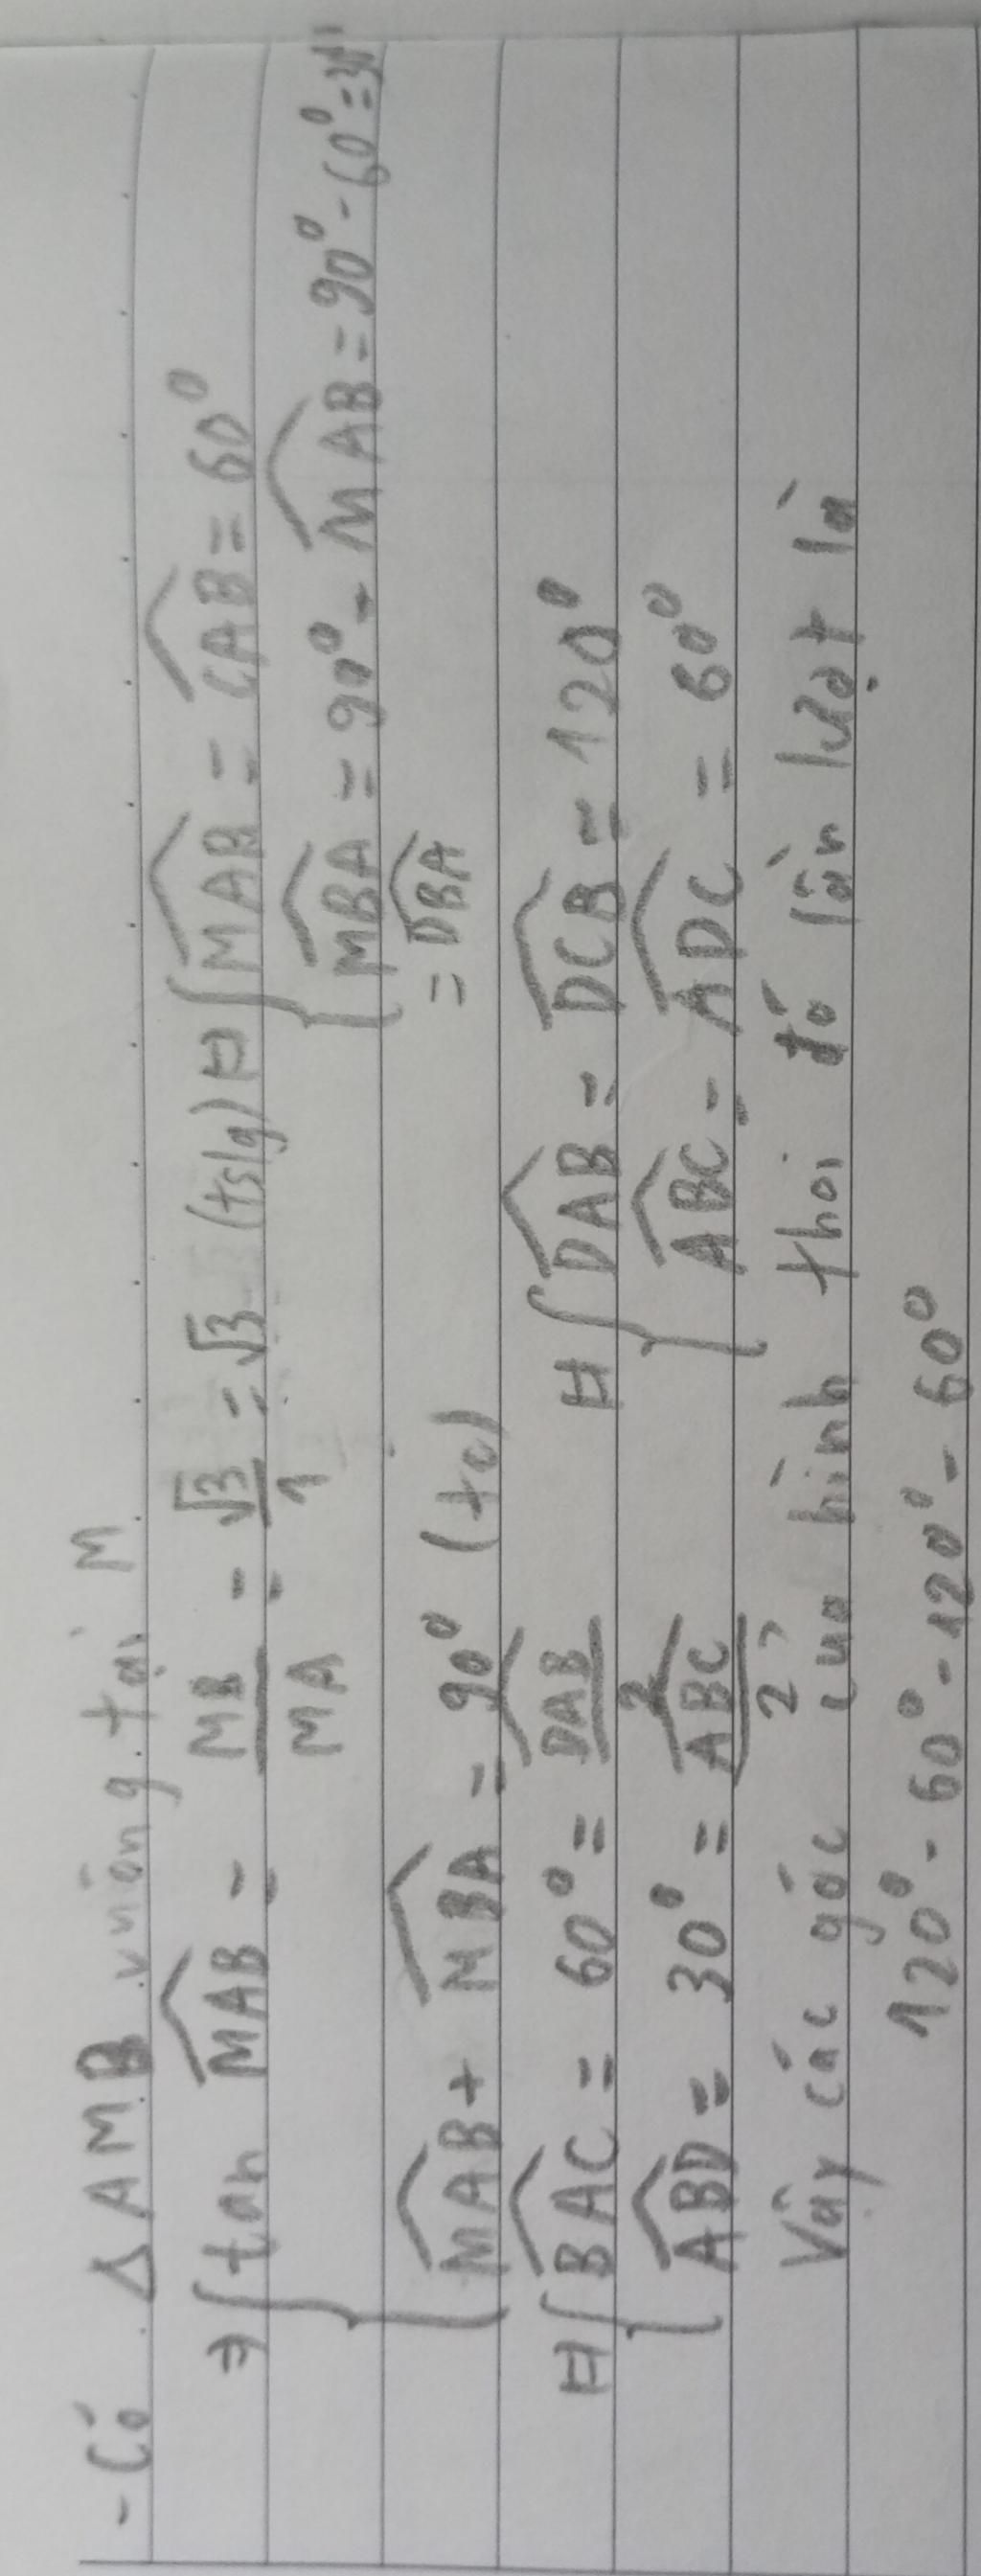 - Có ΔAMB vuông tại M
⇒ { tan MAB = MB/MA = √3/1 = √3 (tslg) ⇔ { MAB = CAB = 60°
MAB + MBA = 90° (tc) { MBA = 90° - MAB = 90° - 60° = 30°
= DBA
⇔ { BAC = 60° = DAB/2 ⇔ { DAB = DCB = 120°
ABD = 30° = ABC/2 ABC = ADC = 60°
Vậy các góc của hình thoi đó lần lượt là
120° - 60° - 120° - 60°